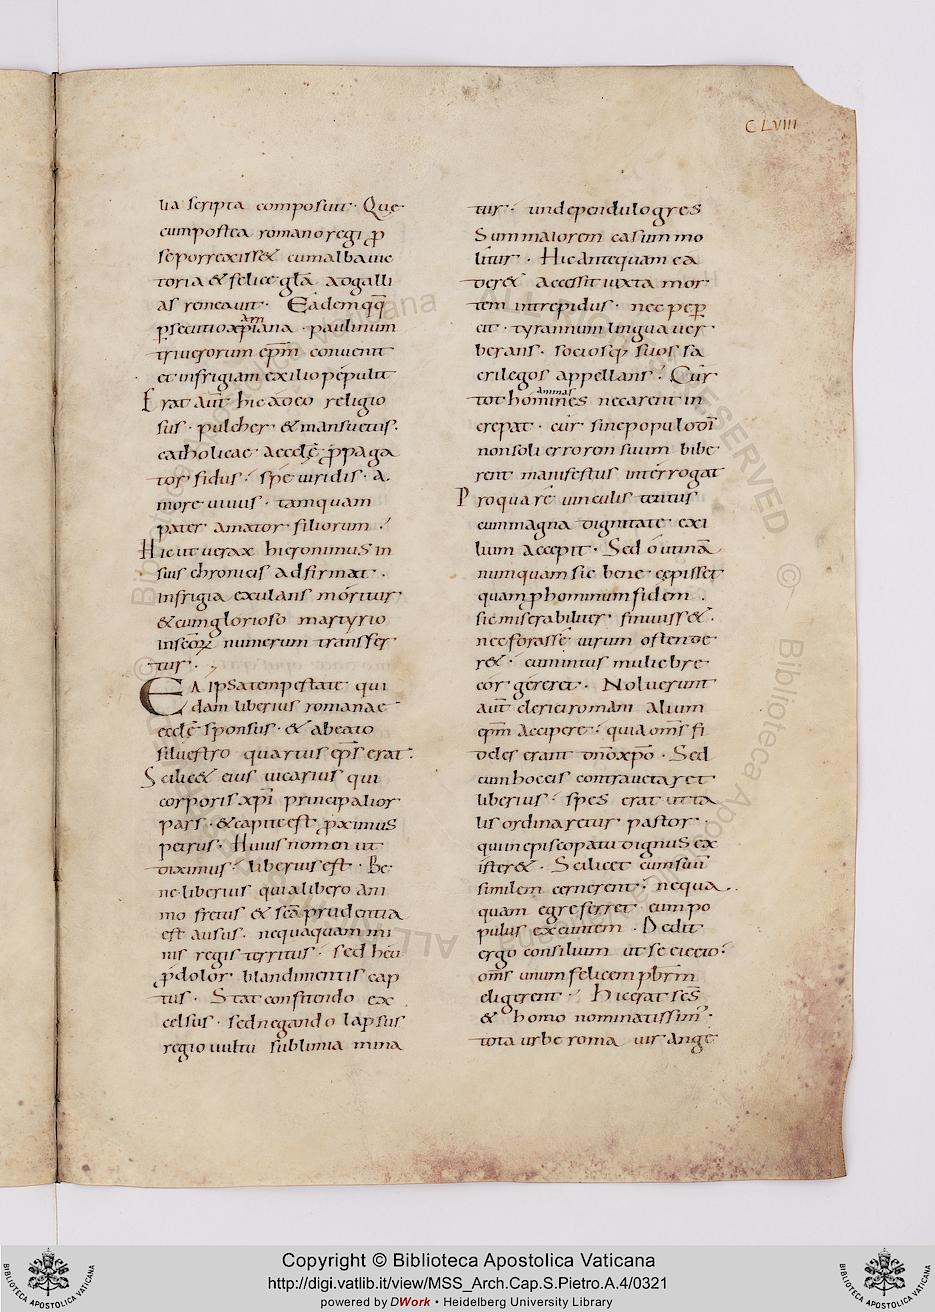 CLVIII
lia scripta composuit · Que
cum postea romano regi p̄
se porrexisset cum alba uic
toria & felice gl̄a ad galli
as remeauit · Eadem qq̄
p̱secutio xp̄iana · paulinum
triuerorum ep̄m conuenit
et in frigiam exilio pepulit
Erat aut̄ hic a deo religio
sus · pulcher & mansuetus ·
catholicae aecclȩ p̄paga
tor fidus · spe uiridis · a
more uiuus · tamquam
pater amator filiorum ·
Hic ut uerax hieronimus in
suis chronicis adfirmat ·
in frigia exulans moritur
& cum glorioso martyrio
in sc̄orum numerum transfer
tur ·
Ea ipsa tempestate qui
dam liberius romanae
eccl̄e sponsus · & a beato
siluestro quartus ep̄s erat ·
Scilicet eius uicarius qui
corporis xp̄i principalior
pars · & capite est p̄ximus
petrus · Huius nomen ut
diximus · liberius est · Be
ne liberius quia libero ani
mo fretus & sc̄a prudentia
est ausus · nequaquam mi
nis regis territus · sed heu
p̄dolor blandimentis cap
tus · Stat confitendo ex
celsus · sed negando lapsus
regio uultu sublimia mina
tur · unde pendulo gres
su maiorem casum mo
litur · Hic antequam ca
deret accessit iuxta mor
tem intrepidus · nec pep̱
cit · tyrannum lingua uer
berans · sociosq; suos sa
crilegos appellans · Cur
tot homines necarent in
crepat · cur sine populo d̄i
non soli errorem suum bibe
rent manifestus interrogat
Pro qua re uinculis tentus
cum magna dignitate exi
lium accepit · Sed o utinā
numquam sic bene cepisset
quam p hominum fidem ·
sic miserabiliter finuisset ·
nec forasse uirum ostende
ret · cum intus muliebre
cor gereret · Noluerunt
aut̄ clerici romani alium
ep̄m accipere · quia om̄s fi
deles erant d̄no xp̄o · Sed
cum hoc eis contraueta r̄et
liberius · spes erat ut ta
lis ordinaretur pastor ·
qui in episcopatu dignus ex
isteret · Scilicet cum suū
similem cernerent · nequa
quam egre ferret eum po
pulus exeuntem · Dedit
ergo consilium ut se eiecto
om̄s unum felicem pb̄rm
eligerent · Hic erat sc̄s
& homo nominatissim̄ ·
tota urbe roma uir ange
Copyright © Biblioteca Apostolica Vaticana
http://digi.vatlib.it/view/MSS_Arch.Cap.S.Pietro.A.4/0321
powered by DWork • Heidelberg University Library
BIBLIOTECA APOSTOLICA VATICANA
BIBLIOTECA APOSTOLICA VATICANA